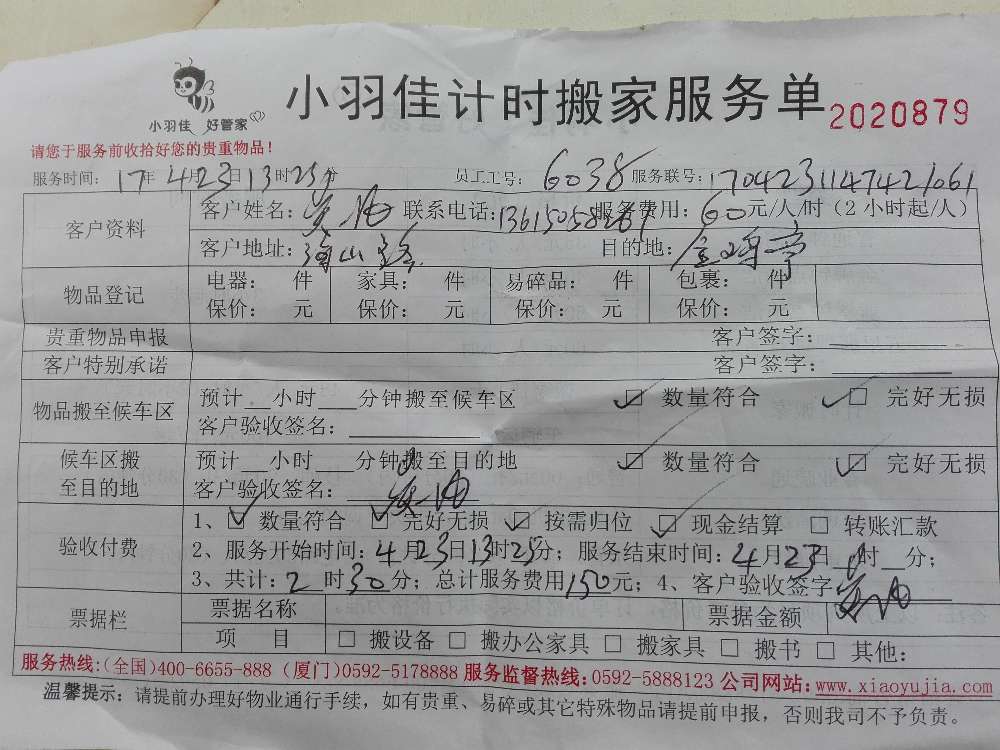 小羽佳 好管家
小羽佳计时搬家服务单 2020879
请您于服务前收拾好您的贵重物品！
服务时间：17年4月23日13时25分 员工工号：6038 服务联号：170423114742/061
客户资料 客户姓名： 联系电话： 服务费用：60元/人/时（2小时起/人）
客户地址： 目的地：
物品登记 电器： 件 家具： 件 易碎品： 件 包裹： 件
保价： 元 保价： 元 保价： 元 保价： 元
贵重物品申报 客户签字：
客户特别承诺 客户签字：
物品搬至候车区 预计__小时___分钟搬至候车区 ☑ 数量符合 ☑ 完好无损
客户验收签名：
候车区搬至目的地 预计__小时___分钟搬至目的地 ☑ 数量符合 ☑ 完好无损
客户验收签名：
验收付费 1、☑ 数量符合 ☑ 完好无损 ☑ 按需归位 ☑ 现金结算 □ 转账汇款
2、服务开始时间：4月23日13时25分；服务结束时间：4月23日__时__分；
3、共计：2时30分；总计服务费用150元；4、客户验收签字
票据栏 票据名称 票据金额
项 目 □ 搬设备 □ 搬办公家具 □ 搬家具 □ 搬书 □ 其他：
服务热线:(全国)400-6655-888 (厦门)0592-5178888 服务监督热线:0592-5888123 公司网站:www.xiaoyujia.com
温馨提示：请提前办理好物业通行手续，如有贵重、易碎或其它特殊物品请提前申报，否则我司不予负责。